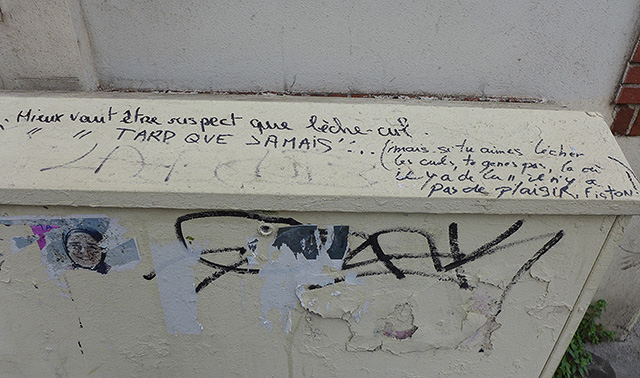 . Mieux vaut être suspect que lèche-cul.
" " TARD QUE JAMAIS!...
(mais si tu aimes lécher
les culs, te gênes pas, là où
il y a de la " il n'y a
pas de plaisir, FISTON!